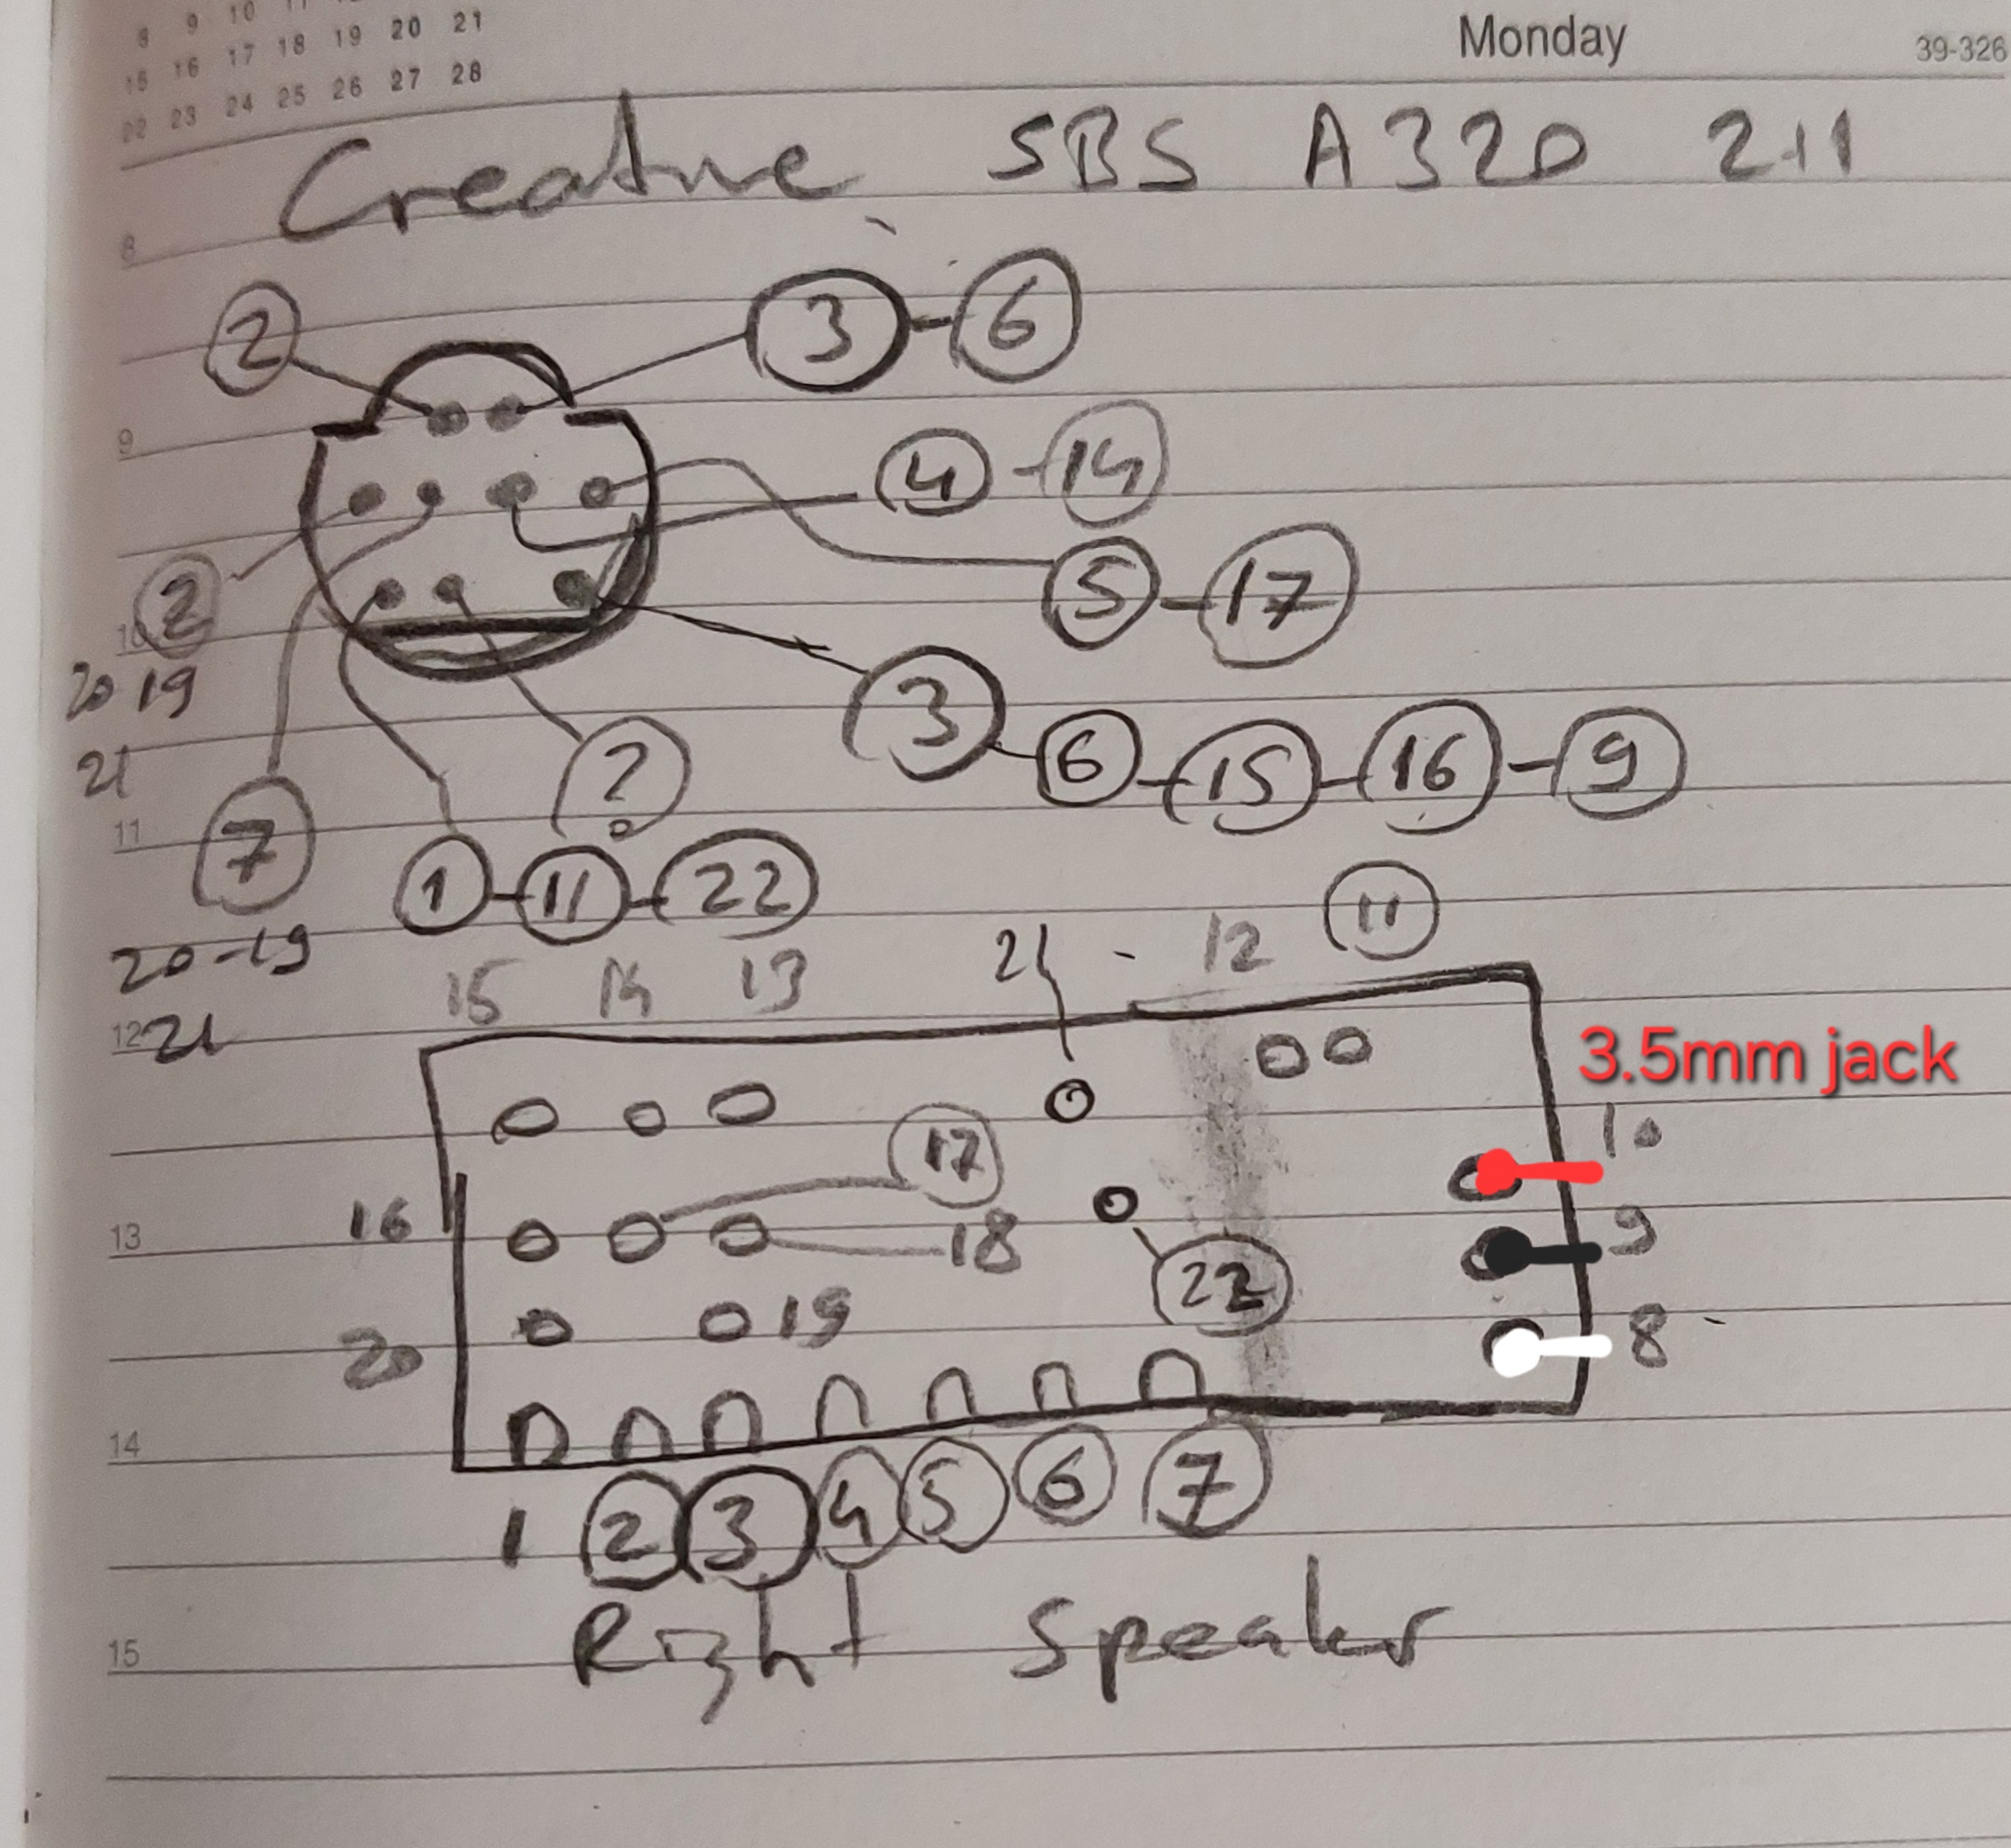 8 9 10 11
15 16 17 18 19 20 21
22 23 24 25 26 27 28
Monday
39-326
Creative SBS A320 2.1
8
2
3 - 6
9
4 - 14
2
5 - 17
10
20 19
3 - 6 - 15 - 16 - 9
21
?
11
7
1 - 11 - 22
11
20-19
15 14 13
21 - 12
12
21
3.5mm jack
10
17
16
13
18
9
22
19
8
20
14
1 2 3 4 5 6 7
Right Speaker
15